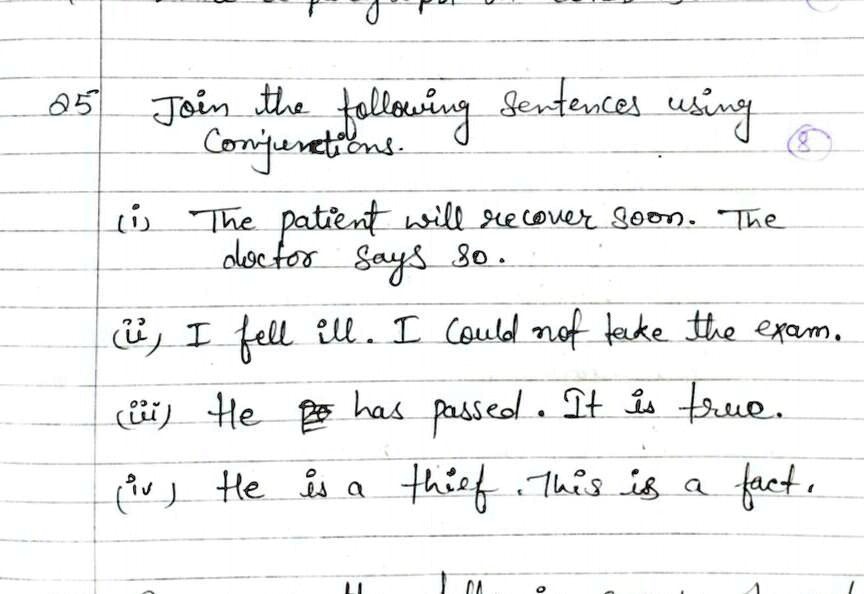 Q5 Join the following Sentences using
Conjunctions. 8
(i) The patient will recover soon. The
doctor says so.
(ii) I fell ill. I Could not take the exam.
(iii) He has passed. It is true.
(iv) He is a thief. This is a fact.